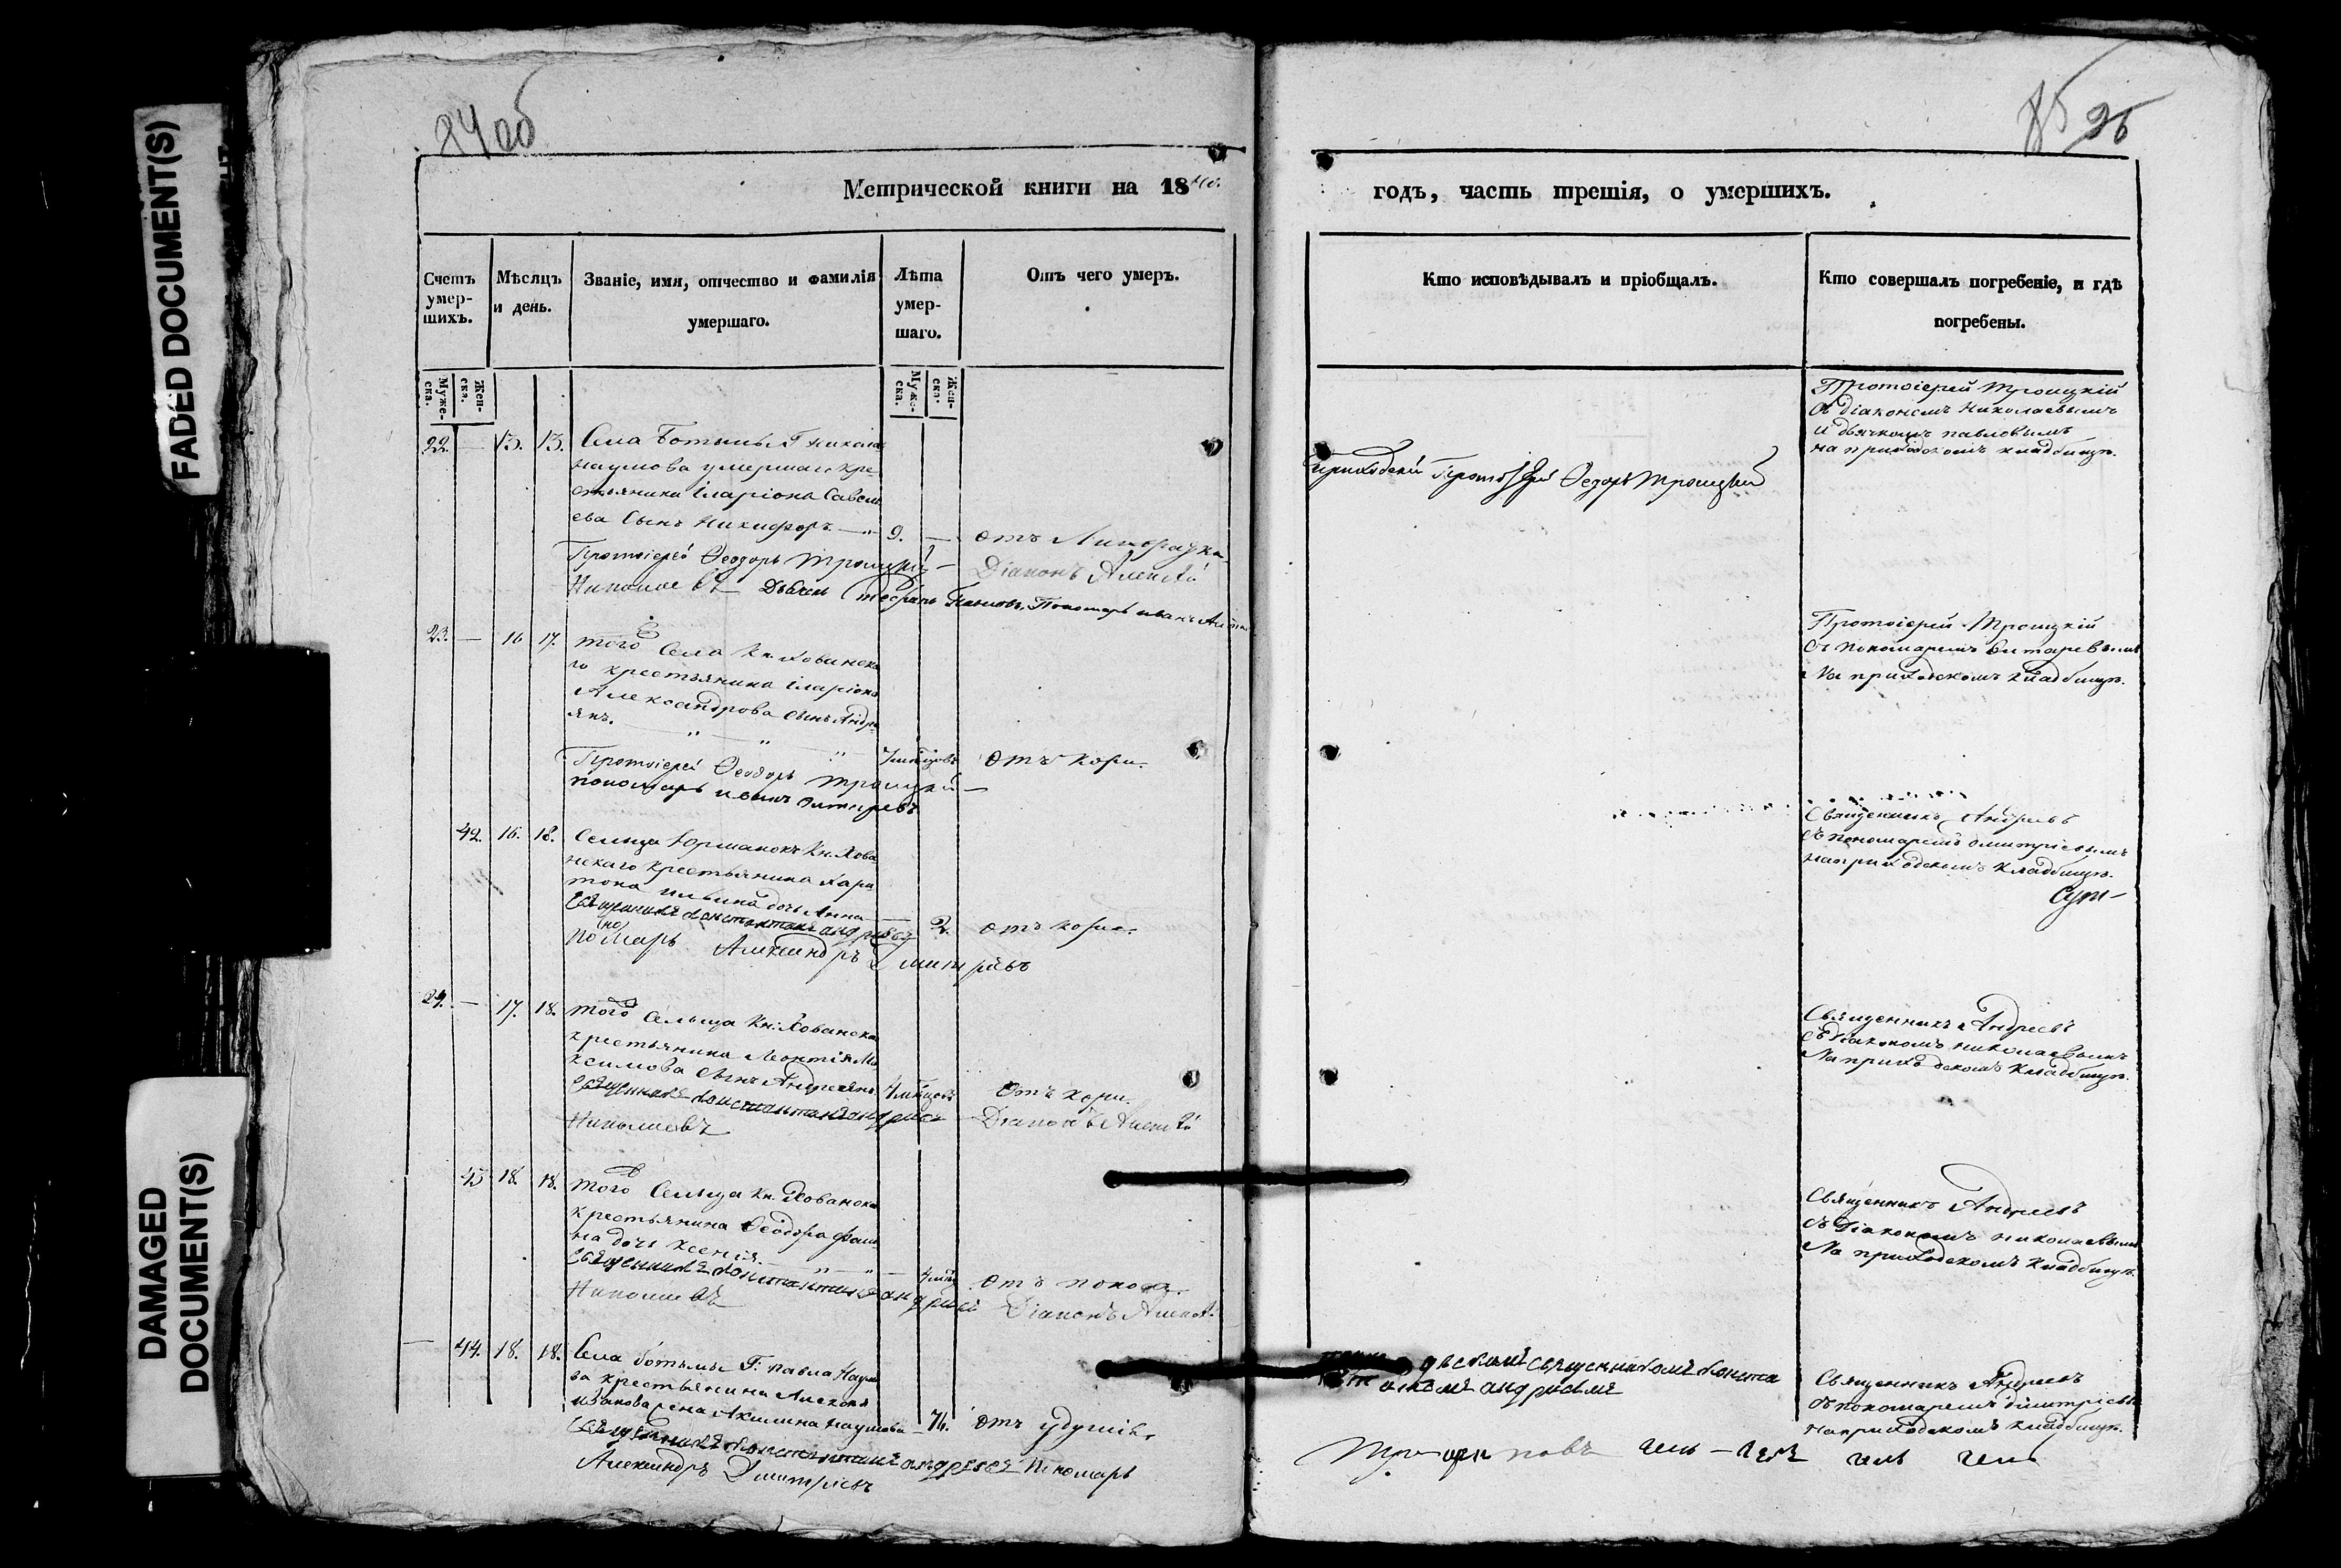 FADED DOCUMENT(S)
DAMAGED
DOCUMENT(S)
84об
85
Метрической книги на 18
годъ, часть третія, о умершихъ.
Счетъ
умер-
шихъ.
Мѣсяцъ
и день.
Званіе, имя, отчество и фамилія
умершаго.
Лѣта
умер-
шаго.
Отъ чего умеръ.
Кто исповѣдывалъ и пріобщалъ.
Кто совершалъ погребеніе, и гдѣ
погребены.
Муже-
ска.
Жен-
ска.
Муже-
ска.
Жен-
ска.
22. — 13. 13. Села Ботьмы Г. Никола
Наумова умершаго кре-
стьянина Иларіона Савель
ева Сынъ Никифоръ — 9. — отъ Лихорадки
Протоіерей Ѳеодоръ Троицкій — Діаконъ Алексѣй
Николаевъ Дьячекъ Павловъ, Пономарь Иванъ
Приходскій Протоіерей Ѳедоръ Троицкій
Протоіерей Троицкій
съ діакономъ Николаевымъ
и дьячкомъ Павловымъ
на приходскомъ кладбищѣ.
23. — 16 17. того Села Кн. Хованска
го крестьянина Иларіона
Александрова сынъ Андре
янъ. — " — " — " отъ кори.
Протоіерей Ѳеодоръ Троицкій —
пономарь Иванъ
Протоіерей Троицкій
съ пономаремъ
на приходскомъ кладбищѣ.
42. 16. 18. Сельца Юрманокъ Кн. Хова
нскаго крестьянина Хари
тона Ильина дочь Анна — 2. отъ кори.
Священникъ Константинъ Андреевъ
пономарь Александръ Дмитріевъ
Священникъ Андреевъ
съ пономаремъ Дмитріевымъ
на приходскомъ кладбищѣ.
24. — 17. 18. того Сельца Кн: Хованска
крестьянина Леонтія Ма
ксимова сынъ Андреянъ отъ кори.
Священникъ Константинъ Андреевъ Діаконъ Алексѣй
Николаевъ
Священникъ Андреевъ
съ діакономъ Николаевымъ
на приходскомъ кладбищѣ.
43 18. 18. того Сельца Кн. Хованска
крестьянина Ѳеодора
на дочь Ксенія. — " — " — отъ поноса
Священникъ Константинъ Андреевъ Діаконъ Алексѣй
Николаевъ
Священникъ Андреевъ
съ Діакономъ Николаевымъ
на приходскомъ кладбищѣ.
— 44. 18. 18. Села Ботьмы Г: Павла Наумо
ва крестьянина Алексѣя
Иванова жена Акилина Наумова — 76. отъ удушья.
Священникъ Константинъ Андреевъ Пономарь
Александръ Дмитріевъ
священникомъ Конста
нтиномъ Андреевымъ
Священникъ Андреевъ
съ пономаремъ Димитріевы
на приходскомъ кладбищѣ.